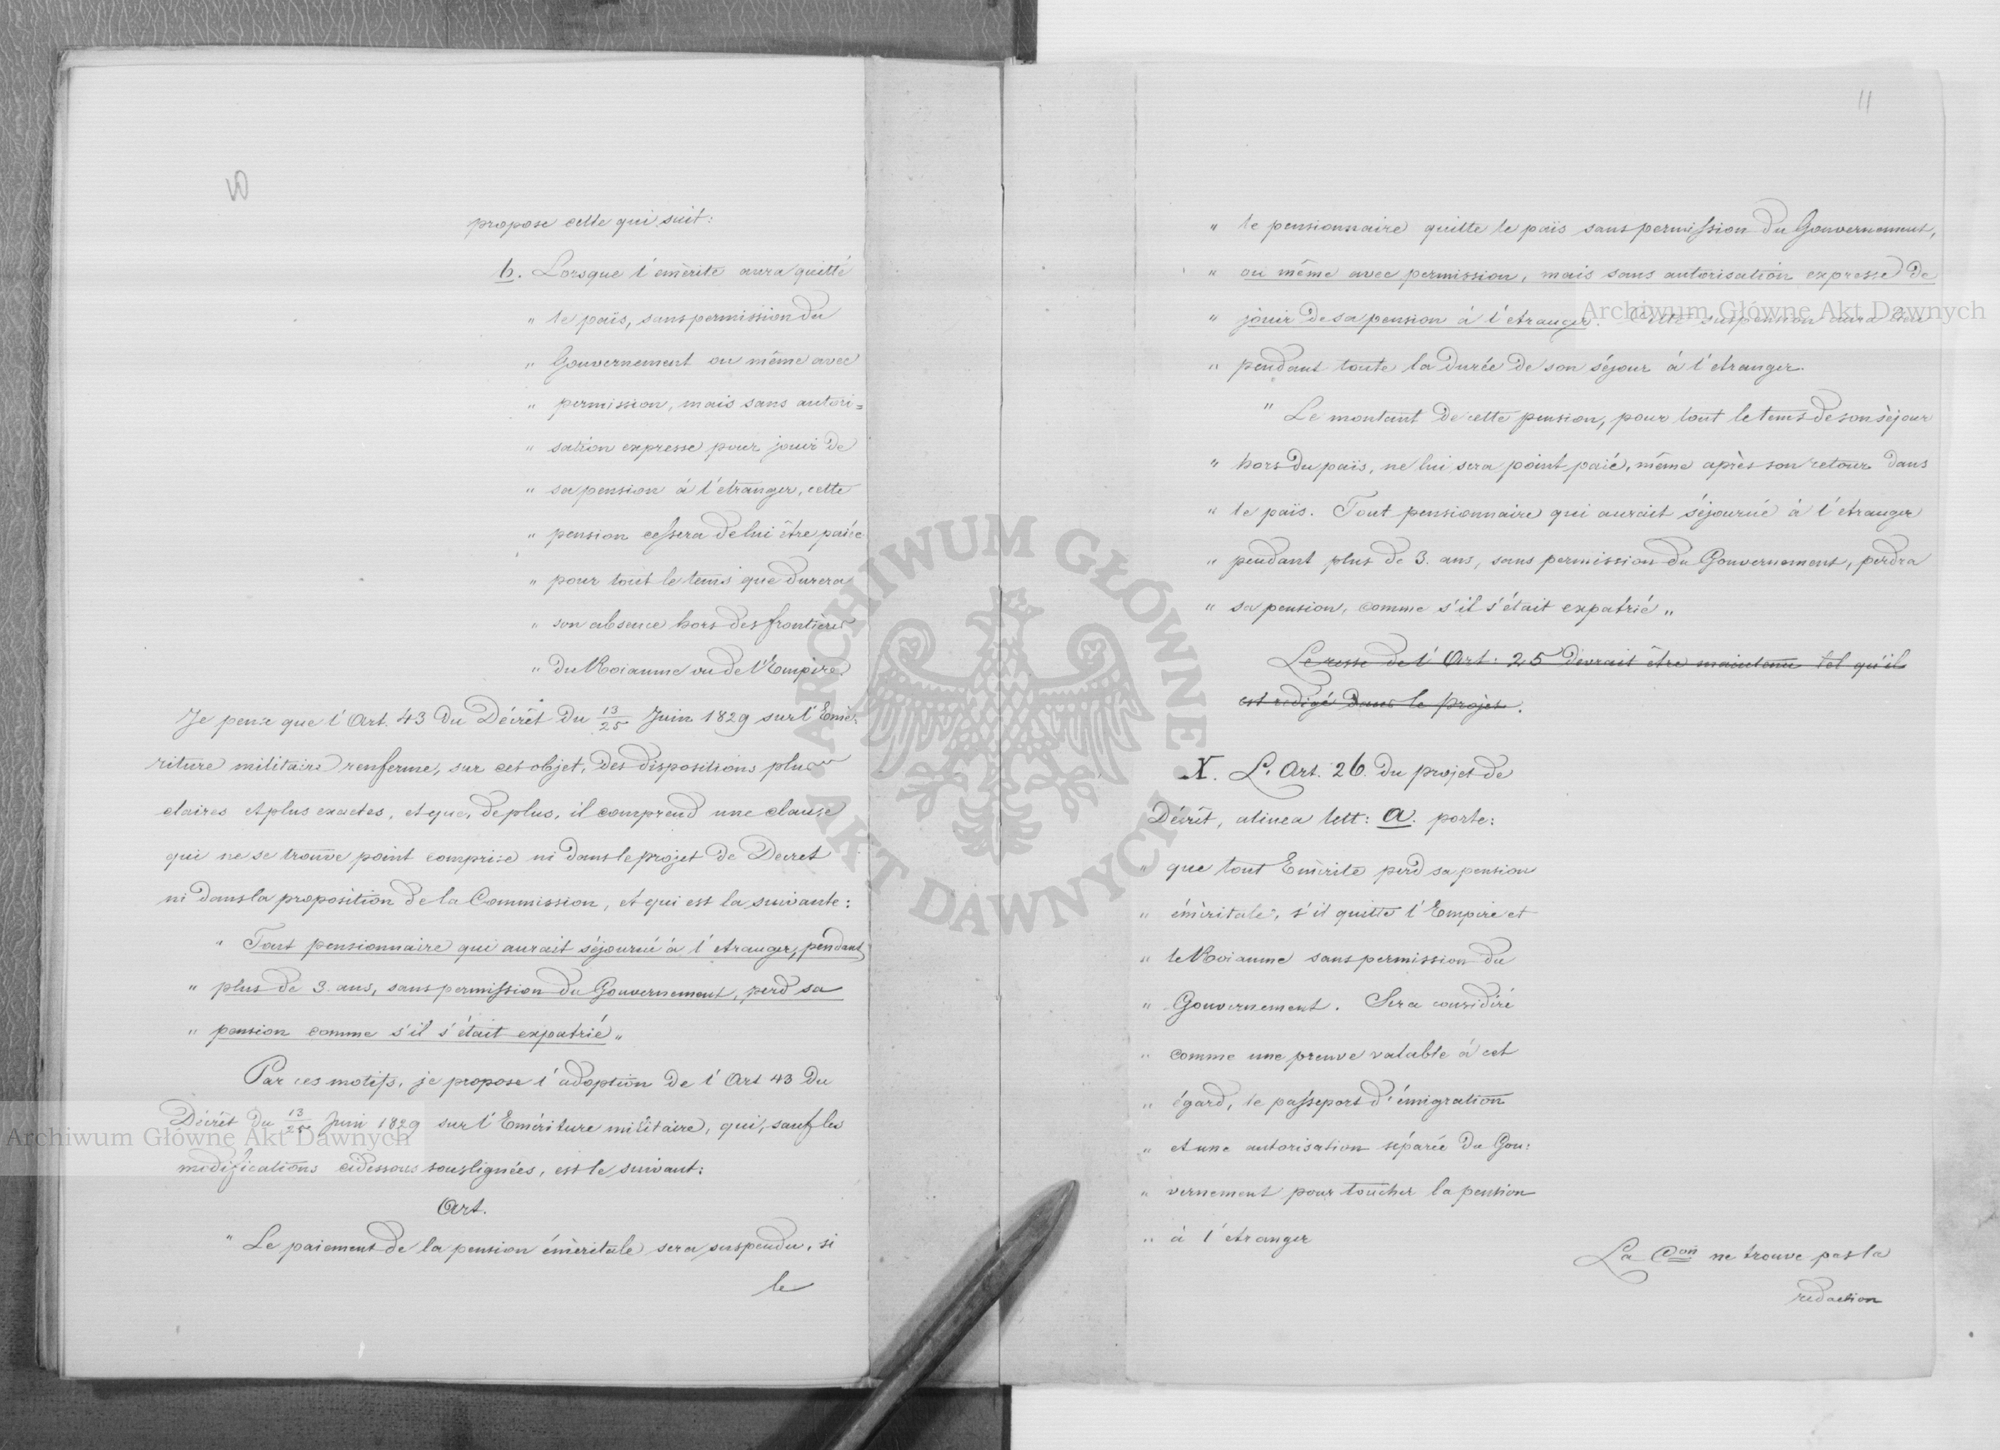 10
propose celle qui suit:
b. Lorsque l'émérite aura quitté
" le païs, sans permission du
" Gouvernement ou même avec
" permission, mais sans autori=
" sation expresse pour jouir de
" sa pension à l'etranger, cette
" pension cessera de lui être paiée
" pour tout le tems que durera
" son absence hors des frontières
" du Roiaume ou de l'Empire
Je pense que l'Art. 43 du Décrèt du 13/25 Juin 1829 sur l'Emé-
riture militaire renferme, sur cet objet, des dispositions plus
claires et plus exactes, et que, de plus, il comprend une clause
qui ne se trouve point comprise ni dans le projet de Decret
ni dans la proposition de la Commission, et qui est la suivante:
" Tout pensionnaire qui aurait séjourné à l'etranger, pendant
" plus de 3. ans, sans permission du Gouvernement, perd sa
" pension comme s'il s'était expatrié "
Par ces motifs, je propose l'adoption de l'Art 43 du
Décrèt du 13/25 Juin 1829 sur l'Emériture militaire, qui, sauf les
modifications cidessous souslignées, est le suivant:
Art.
" Le paiement de la pension éméritale sera suspendu, si
le
11
" le pensionnaire quitte le païs sans permission du Gouvernement,
" ou même avec permission, mais sans autorisation expresse de
" jouir de sa pension à l'etranger. Cette suspension aura lieu
" pendant toute la durée de son séjour à l'etranger.
" Le montant de cette pension, pour tout le tems de son séjour
" hors du païs, ne lui sera point paié, même après son retour dans
" le païs. Tout pensionnaire qui aurait séjourné à l'étranger
" pendant plus de 3. ans, sans permission du Gouvernement, perdra
" sa pension, comme s'il s'était expatrié "
Le reste de l'Art: 25 devrait être maintenu tel qu'il
est redigé dans le projet.
X. L'Art. 26. du projet de
Décrèt, alinea lett: a. porte:
" que tout Emérite perd sa pension
" éméritale, s'il quitte l'Empire et
" le Roiaume sans permission du
" Gouvernement. Sera considéré
" comme une preuve valable à cet
" égard, le passeport d'émigration
" et une autorisation séparée du Gou:
" vernement pour toucher la pension
" à l'etranger
La Con ne trouve pas la
redaction
Archiwum Główne Akt Dawnych
Archiwum Główne Akt Dawnych
ARCHIWUM GŁÓWNE AKT DAWNYCH